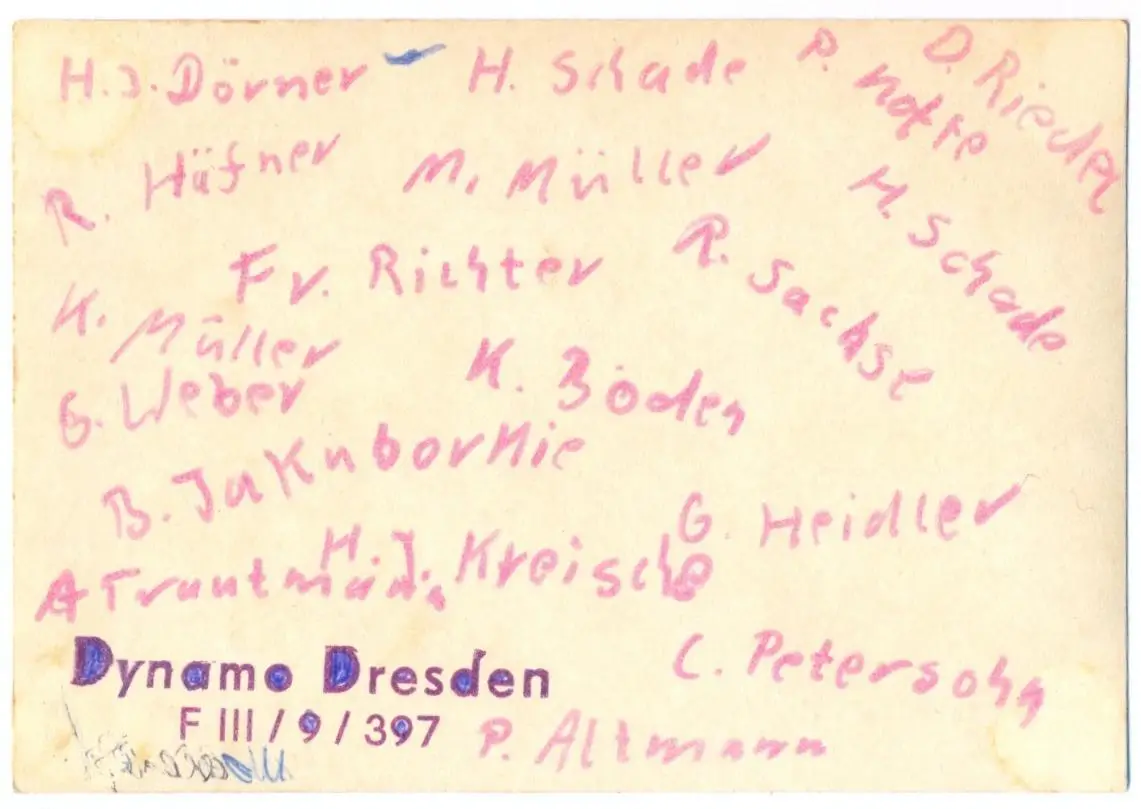 H.J. Dörner
H. Schade
P. Notfe
D. Riedel
R. Häfner
M. Müller
M. Schade
Fr. Richter
R. Sachse
K. Müller
K. Böden
G. Weber
B. Jakubornie
G. Heidler
H.J. Kreische
A Trautmann
C. Petersohn
Dynamo Dresden
F III / 9 / 397
P. Altmann